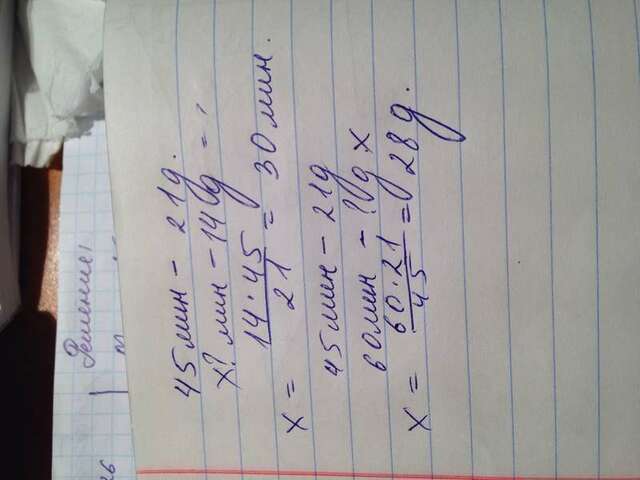 26
Решение,
45 мин - 21 д.
х? мин - 14 д = ?
х = 14 · 45 / 21 = 30 мин.
45 мин - 21 д
60 мин - ? д х
х = 60 · 21 / 45 = 28 д.